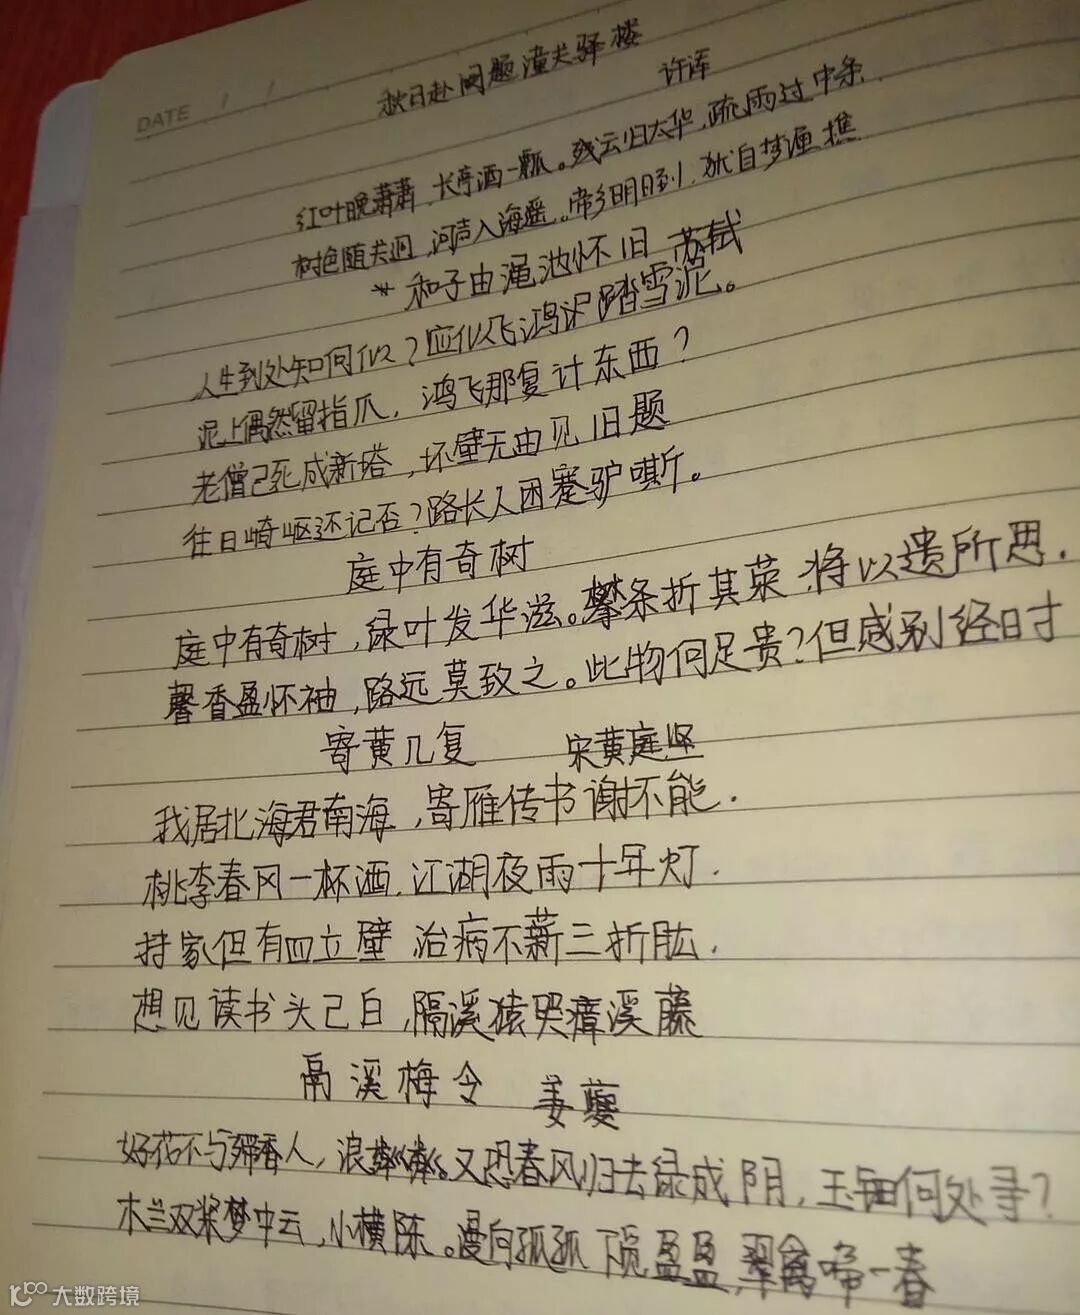 DATE / /
秋日赴阙题潼关驿楼
许浑
红叶晚萧萧,长亭酒一瓢。残云归太华,疏雨过中条
树色随关迥,河声入海遥。帝乡明日到,犹自梦渔樵
* 和子由渑池怀旧 苏轼
人生到处知何似?应似飞鸿踏雪泥。
泥上偶然留指爪,鸿飞那复计东西?
老僧已死成新塔,坏壁无由见旧题
往日崎岖还记否?路长人困蹇驴嘶。
庭中有奇树
庭中有奇树,绿叶发华滋。攀条折其荣,将以遗所思.
馨香盈怀袖,路远莫致之。此物何足贵?但感别经时
寄黄几复 宋黄庭坚
我居北海君南海,寄雁传书谢不能.
桃李春风一杯酒,江湖夜雨十年灯.
持家但有四立壁 治病不蕲三折肱.
想见读书头已白,隔溪猿哭瘴溪藤
鬲溪梅令 姜夔
好花不与殢香人,浪粼粼。又恐春风归去绿成阴,玉钿何处寻?
木兰双桨梦中云,小横陈。漫向孤孤下觅盈盈,翠禽啼一春
大数跨境